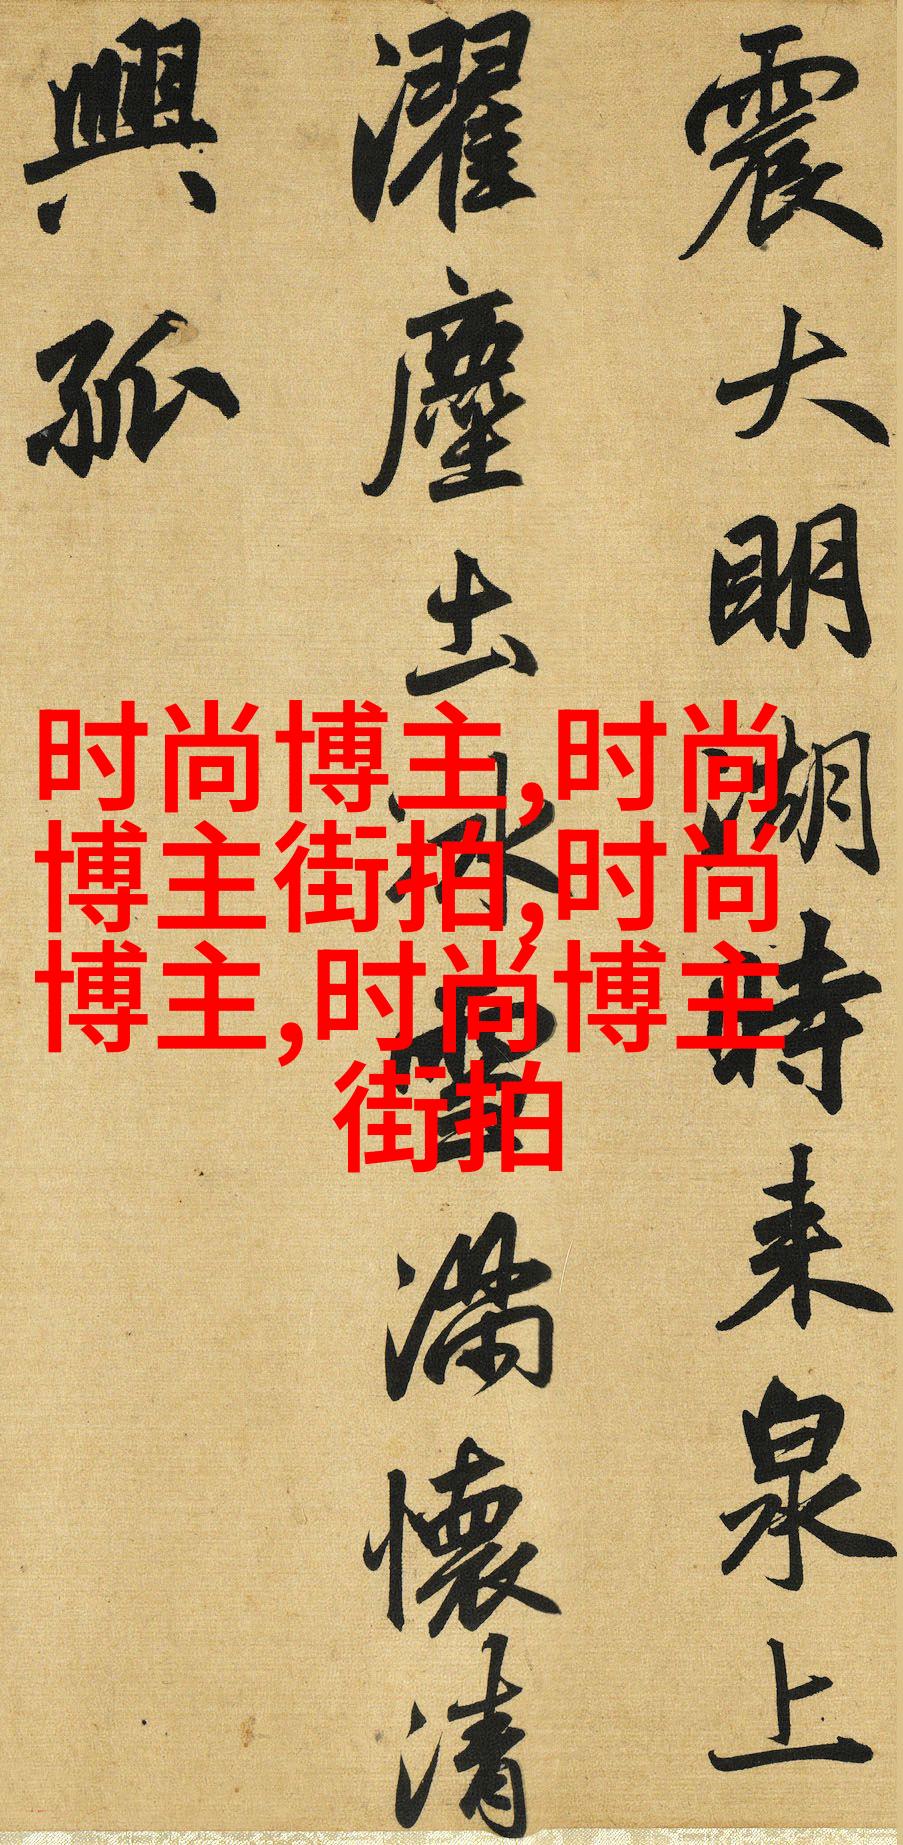 震大明湖時来泉上
濯塵土冰雪满懷清
興孤
时尚博主,时尚
博主街拍,时尚
博主,时尚博主
街拍